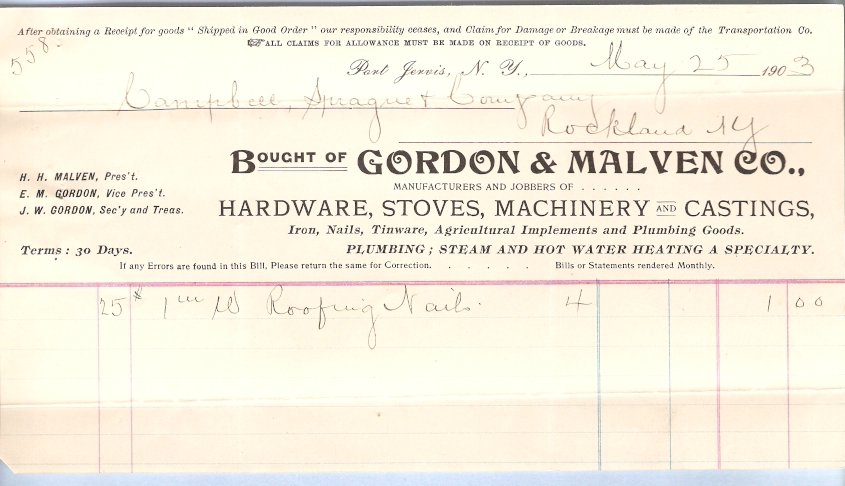 After obtaining a Receipt for goods "Shipped in Good Order" our responsibility ceases, and Claim for Damage or Breakage must be made of the Transportation Co.
☞ALL CLAIMS FOR ALLOWANCE MUST BE MADE ON RECEIPT OF GOODS.
558
Port Jervis, N. Y., May 25 1903
Campbell, Sprague & Company
Rockland NY
BOUGHT OF GORDON & MALVEN CO.,
H. H. MALVEN, Pres't.
E. M. GORDON, Vice Pres't.
J. W. GORDON, Sec'y and Treas.
MANUFACTURERS AND JOBBERS OF . . . . . .
HARDWARE, STOVES, MACHINERY AND CASTINGS,
Iron, Nails, Tinware, Agricultural Implements and Plumbing Goods.
Terms: 30 Days.
PLUMBING; STEAM AND HOT WATER HEATING A SPECIALTY.
If any Errors are found in this Bill, Please return the same for Correction. . . . . . Bills or Statements rendered Monthly.
25# 1 Roofing Nails. 4 1 00